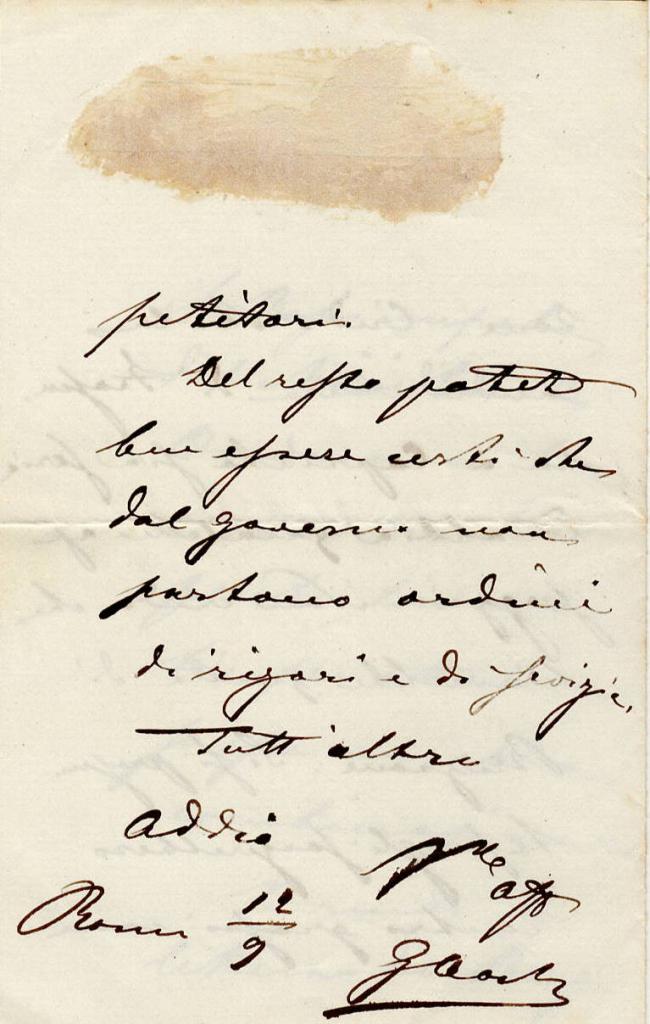 petitori.
Del resto potete
ben essere certi che
dal governo non
partono ordini
di rigori e di sevizie.
Tutt'altro
Addio
aff
Roma 12/9